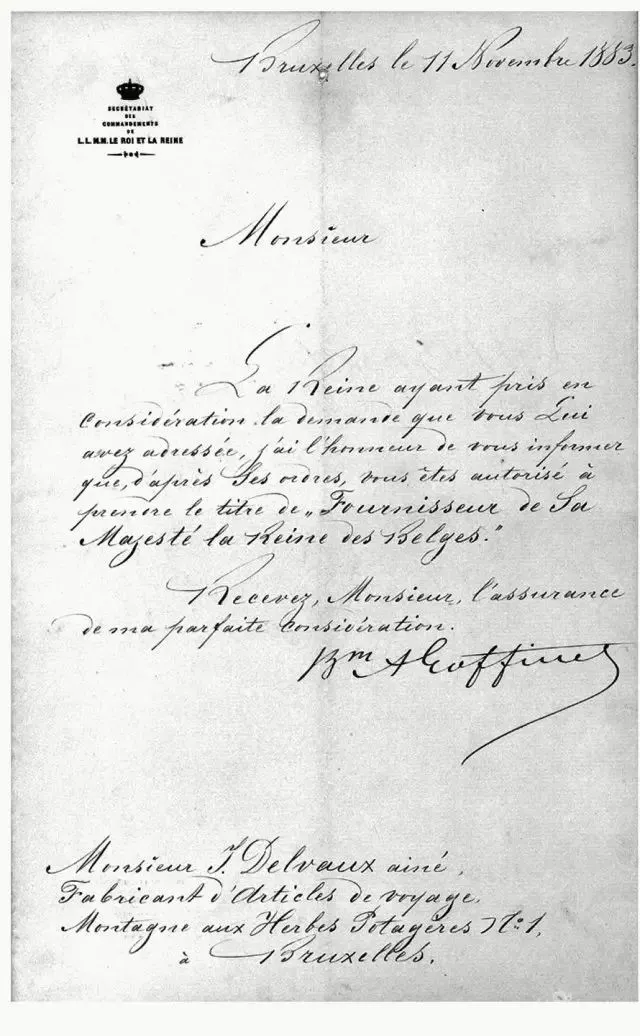 Bruxelles le 11 Novembre 1883.
SECRÉTARIAT
DES
COMMANDEMENTS
DE
L.L.M.M. LE ROI ET LA REINE
Monsieur
La Reine ayant pris en
considération la demande que vous Lui
avez adressée, j'ai l'honneur de vous informer
que, d'après Ses ordres, vous êtes autorisé à
prendre le titre de „Fournisseur de Sa
Majesté la Reine des Belges."
Recevez, Monsieur, l'assurance
de ma parfaite considération.
Bon A Goffinet
Monsieur J. Delvaux ainé,
Fabricant d'Articles de voyage,
Montagne aux Herbes Potagères No 1,
à Bruxelles.